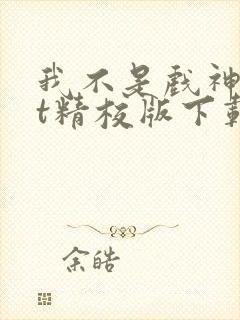 我不是戏神
t精校版下载
余皓